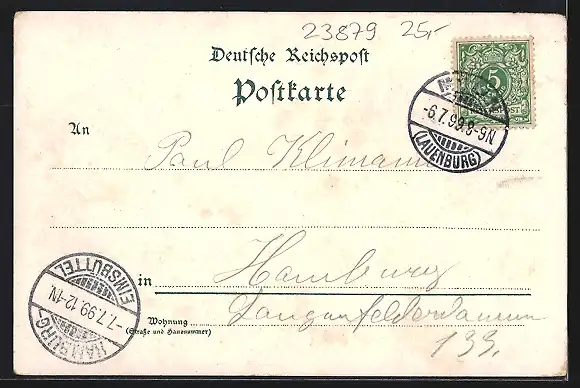 23879 25,-
Deutsche Reichspost
Postkarte
5
-6.7.99.8-9N
(LAUENBURG)
An Paul Klimann
in Hamburg
Wohnung Langenfelderdamm
(Straße und Hausnummer)
133.
HAMBURG-EIMSBÜTTEL
-7.7.99.12-1N.